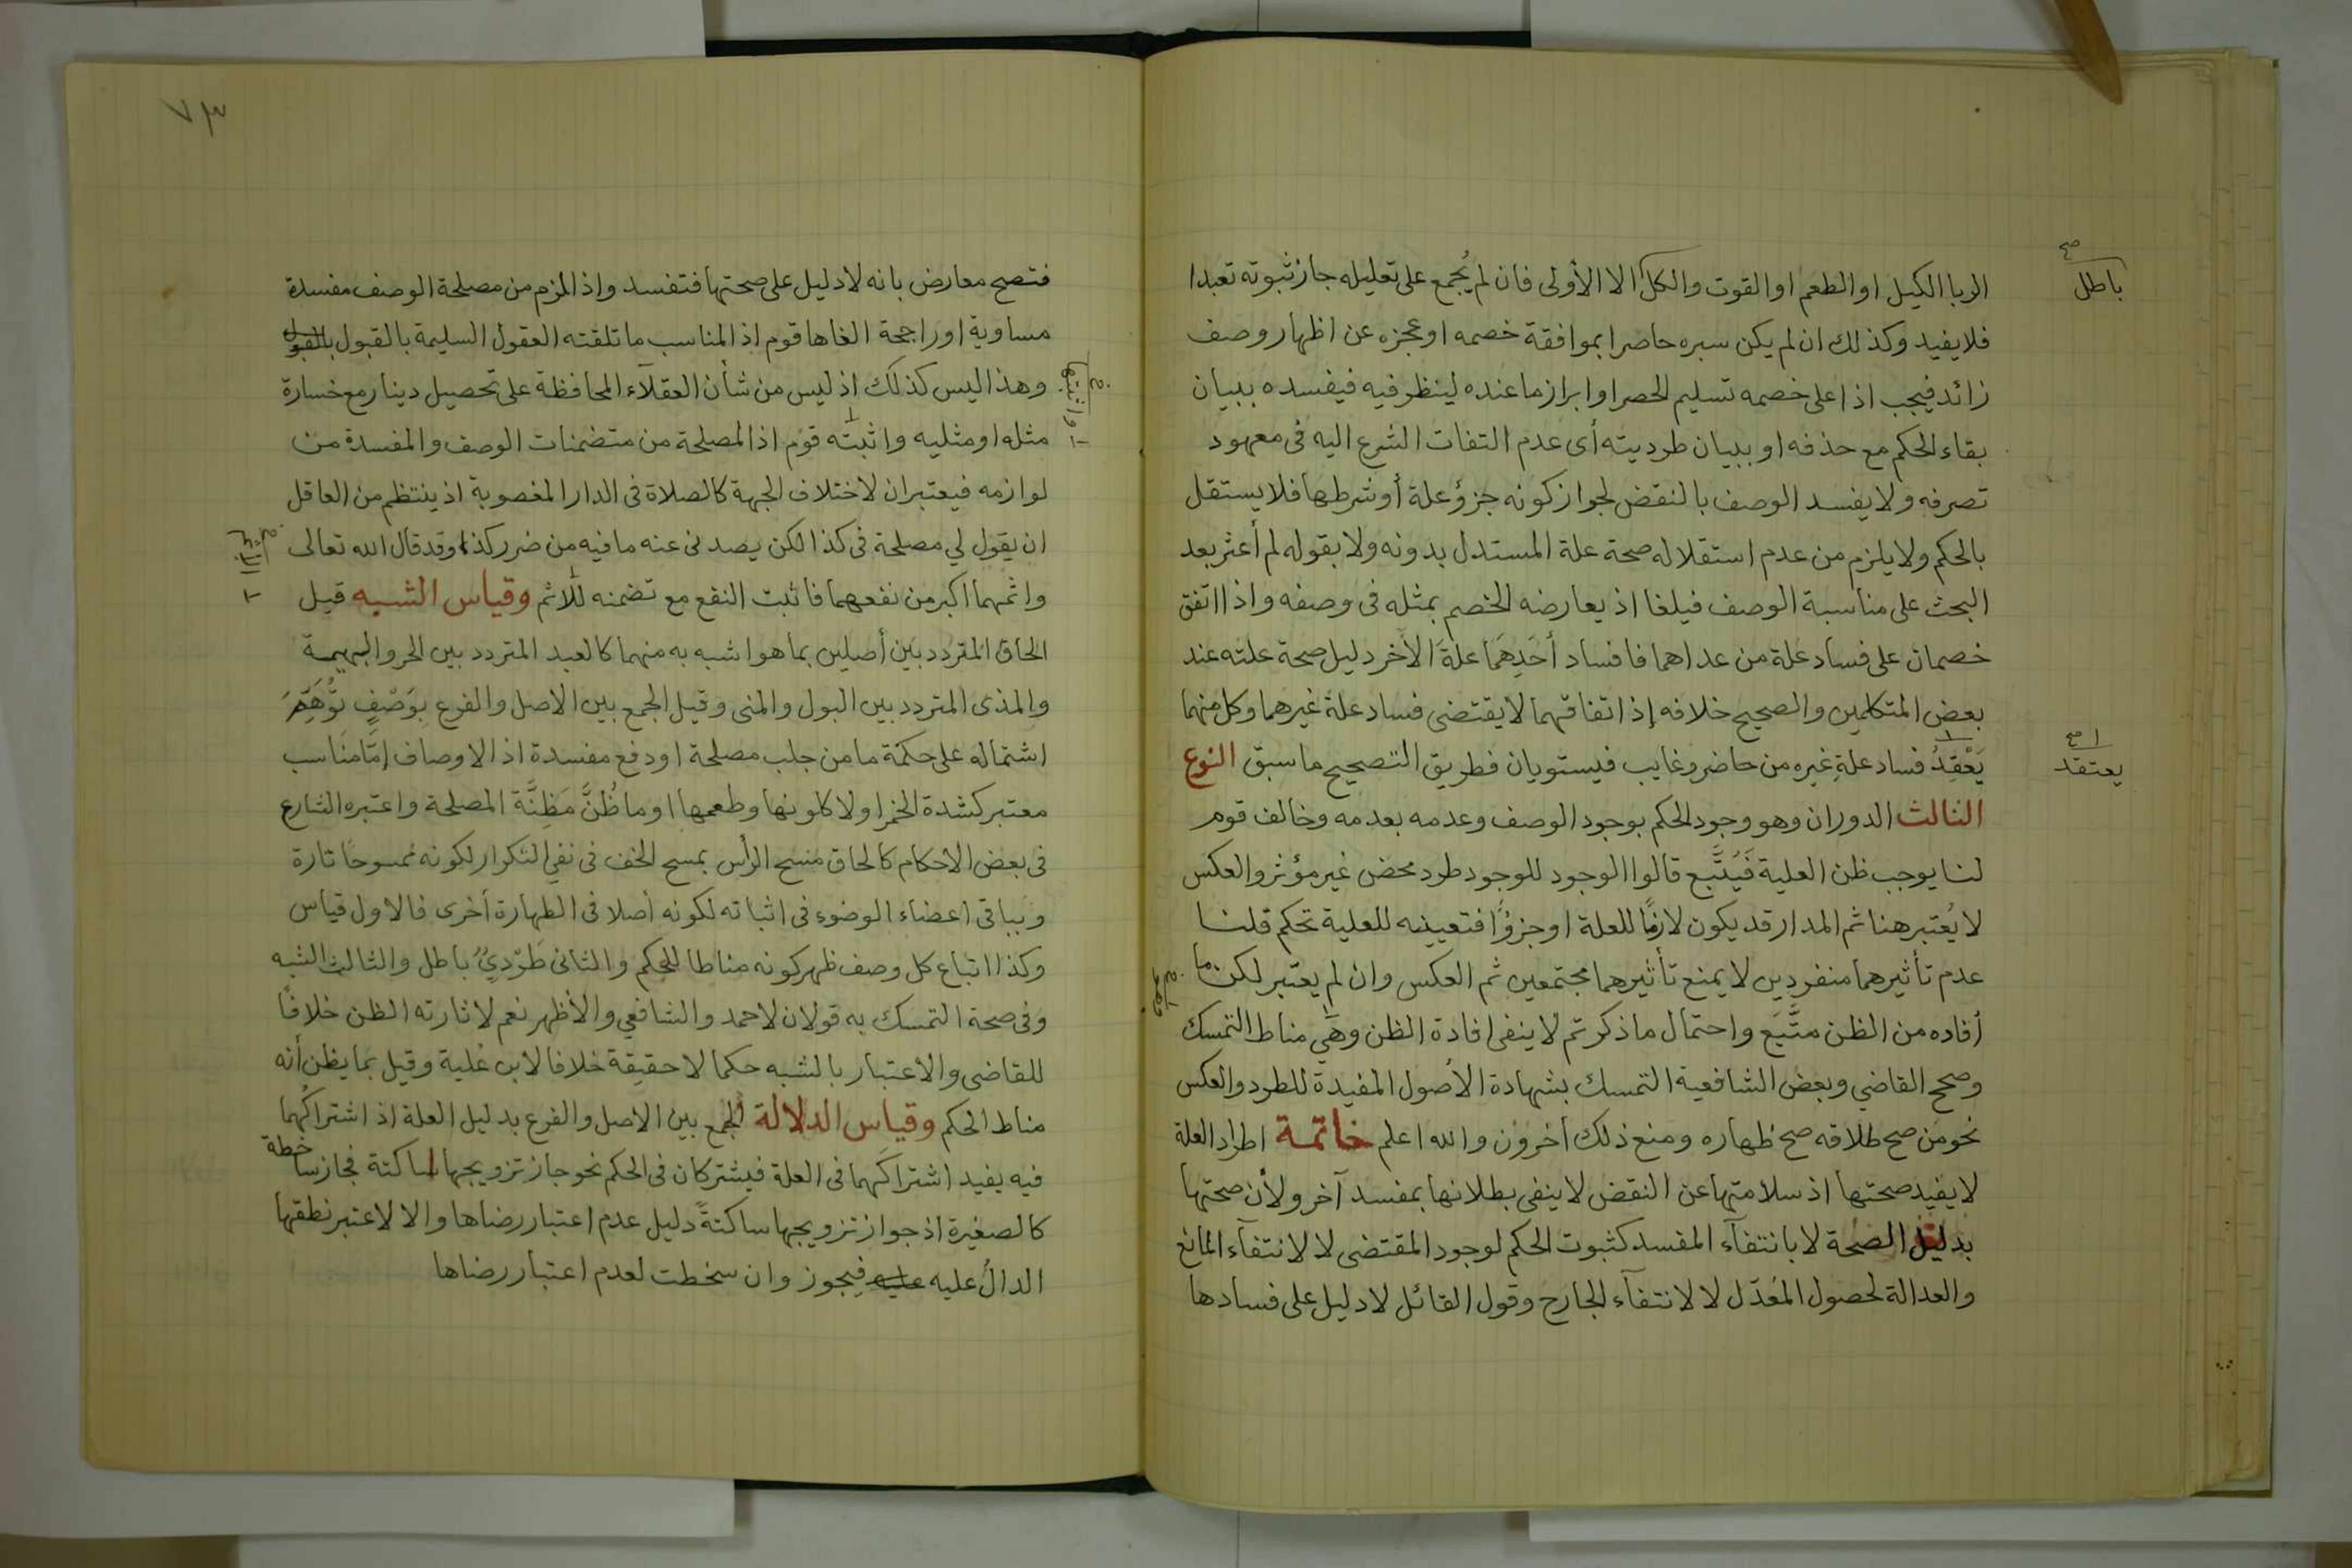 الربا الكيل او الطعم او القوت والكل الا الأولى فان لم يُجمع على تعليله جاز ثبوته تعبدا
صح
باطل
فلا يفيد وكذلك ان لم يكن سبره حاصرا بموافقة خصمه او عجزه عن اظهار وصف
زائد فيجب اذا على خصمه تسليم الحصر او ابراز ما عنده لينظر فيه فيفسده ببيان
بقاء الحكم مع حذفه او ببيان طرديته أى عدم التفات الشرع اليه فى معهود
تصرفه ولا يفسد الوصف بالنقض لجواز كونه جزؤ علة أو شرطها فلا يستقل
بالحكم ولا يلزم من عدم استقلاله صحة علة المستدل بدونه ولا بقوله لم أعثر بعد
البحث على مناسبة الوصف فيلغا اذ يعارضه الخصم بمثله فى وصفه واذا اتفق
خصمان على فساد علة من عداهما فافساد أحَدِهَما علةَ الآخر دليل صحة علته عند
بعض المتكلمين والصحيح خلافه إذ اتفاقهما لا يقتضى فساد علة غيرهما وكل منهما
يَعْقِدُ فساد علةِ غيره من حاضر وغايب فيستويان فطريق التصحيح ما سبق النوع
١ صح
يعتقد
الثالث الدوران وهو وجود الحكم بوجود الوصف وعدمه بعدمه وخالف قوم
لنا يوجب ظن العلية فَيُتَّبع قالوا الوجود للوجود طرد محض غير مؤثر والعكس
لا يُعتبر هنا ثم المدار قد يكون لازمًا للعلة او جزؤًا فتعيينه للعلية تحكم قلنا
عدم تأثيرهما منفردين لا يمنع تأثيرهما مجتمعين ثم العكس وان لم يعتبر لكن ما
أفاده من الظن متَّبَع واحتمال ما ذكرتم لا ينفى افادة الظن وهى مناط التمسك
وصحح القاضي وبعض الشافعية التمسك بشهادة الأصول المفيدة للطرد والعكس
نحو من صح طلاقه صح ظهاره ومنع ذلك أخرون والله اعلم خاتمة اطراد العلة
لا يفيد صحتها اذ سلامتها عن النقض لا ينفى بطلانها بمفسد آخر ولأن صحتها
بدليل الصحة لا بانتفآء المفسد كثبوت الحكم لوجود المقتضى لا لانتفآء المانع
والعدالة لحصول المُعَدّل لا لانتفآء الجارح وقول القائل لا دليل على فسادها
٧٣
فتصح معارض بانه لا دليل على صحتها فتفسد واذا لزم من مصلحة الوصف مفسدة
مساوية او راجحة الغاها قوم اذ المناسب ما تلقته العقول السليمة بالقبول بالقبول
وهذا ليس كذلك اذ ليس من شأن العقلآء المحافظة على تحصيل دينار مع خسارة
مثله او مثليه واثبته قوم اذ المصلحة من متضمنات الوصف والمفسدة من
لوازمه فيعتبران لاختلاف الجهة كالصلاة فى الدار المغصوبة اذ ينتظم من العاقل
ان يقول لي مصلحة فى كذا لكن يصدنى عنه ما فيه من ضرر كذا وقد قال الله تعالى
واثمهما اكبر من نفعهما فاثبت النفع مع تضمنه للاثم وقياس الشبه قيل
الحاق المتردد بين أصلين بما هو اشبه به منهما كالعبد المتردد بين الحر والبهيمة
والمذى المتردد بين البول والمنى وقيل الجمع بين الاصل والفرع بوَصْفٍ تُوُهِّمَ
اشتماله على حكمة ما من جلب مصلحة او دفع مفسدة اذ الاوصاف إمّا مناسب
معتبر كشدة الخمر او لا كلونها وطعمها او ما ظُنَّ مَظِنَّة المصلحة واعتبره الشارع
فى بعض الاحكام كالحاق مسح الرأس بمسح الخف فى نفي التكرار لكونه ممسوحًا تارة
وبباقى اعضاء الوضوء فى اثباته لكونه أصلا فى الطهارة أخرى فالاول قياس
وكذا اتباع كل وصف ظهر كونه مناطا للحكم والثانى طَرْدِيٌّ باطل والثالث الشبه
وفى صحة التمسك به قولان لاحمد والشافعي والأظهر نعم لاثارته الظن خلافًا
للقاضى والاعتبار بالشبه حكما لا حقيقة خلافا لابن عُلية وقيل بما يظن أنه
مناط الحكم وقياس الدلالة الجمع بين الاصل والفرع بدليل العلة اذ اشتراكُهما
فيه يفيد اشتراكَهما فى العلة فيشتركان فى الحكم نحو جاز تزويجها ساكتة فجاز ساخطة
كالصغيرة اذ جواز تزويجها ساكتةً دليل عدم اعتبار رضاها والا لاعتبر نطقها
الدالُ عليه عليه فيجوز وان سخطت لعدم اعتبار رضاها